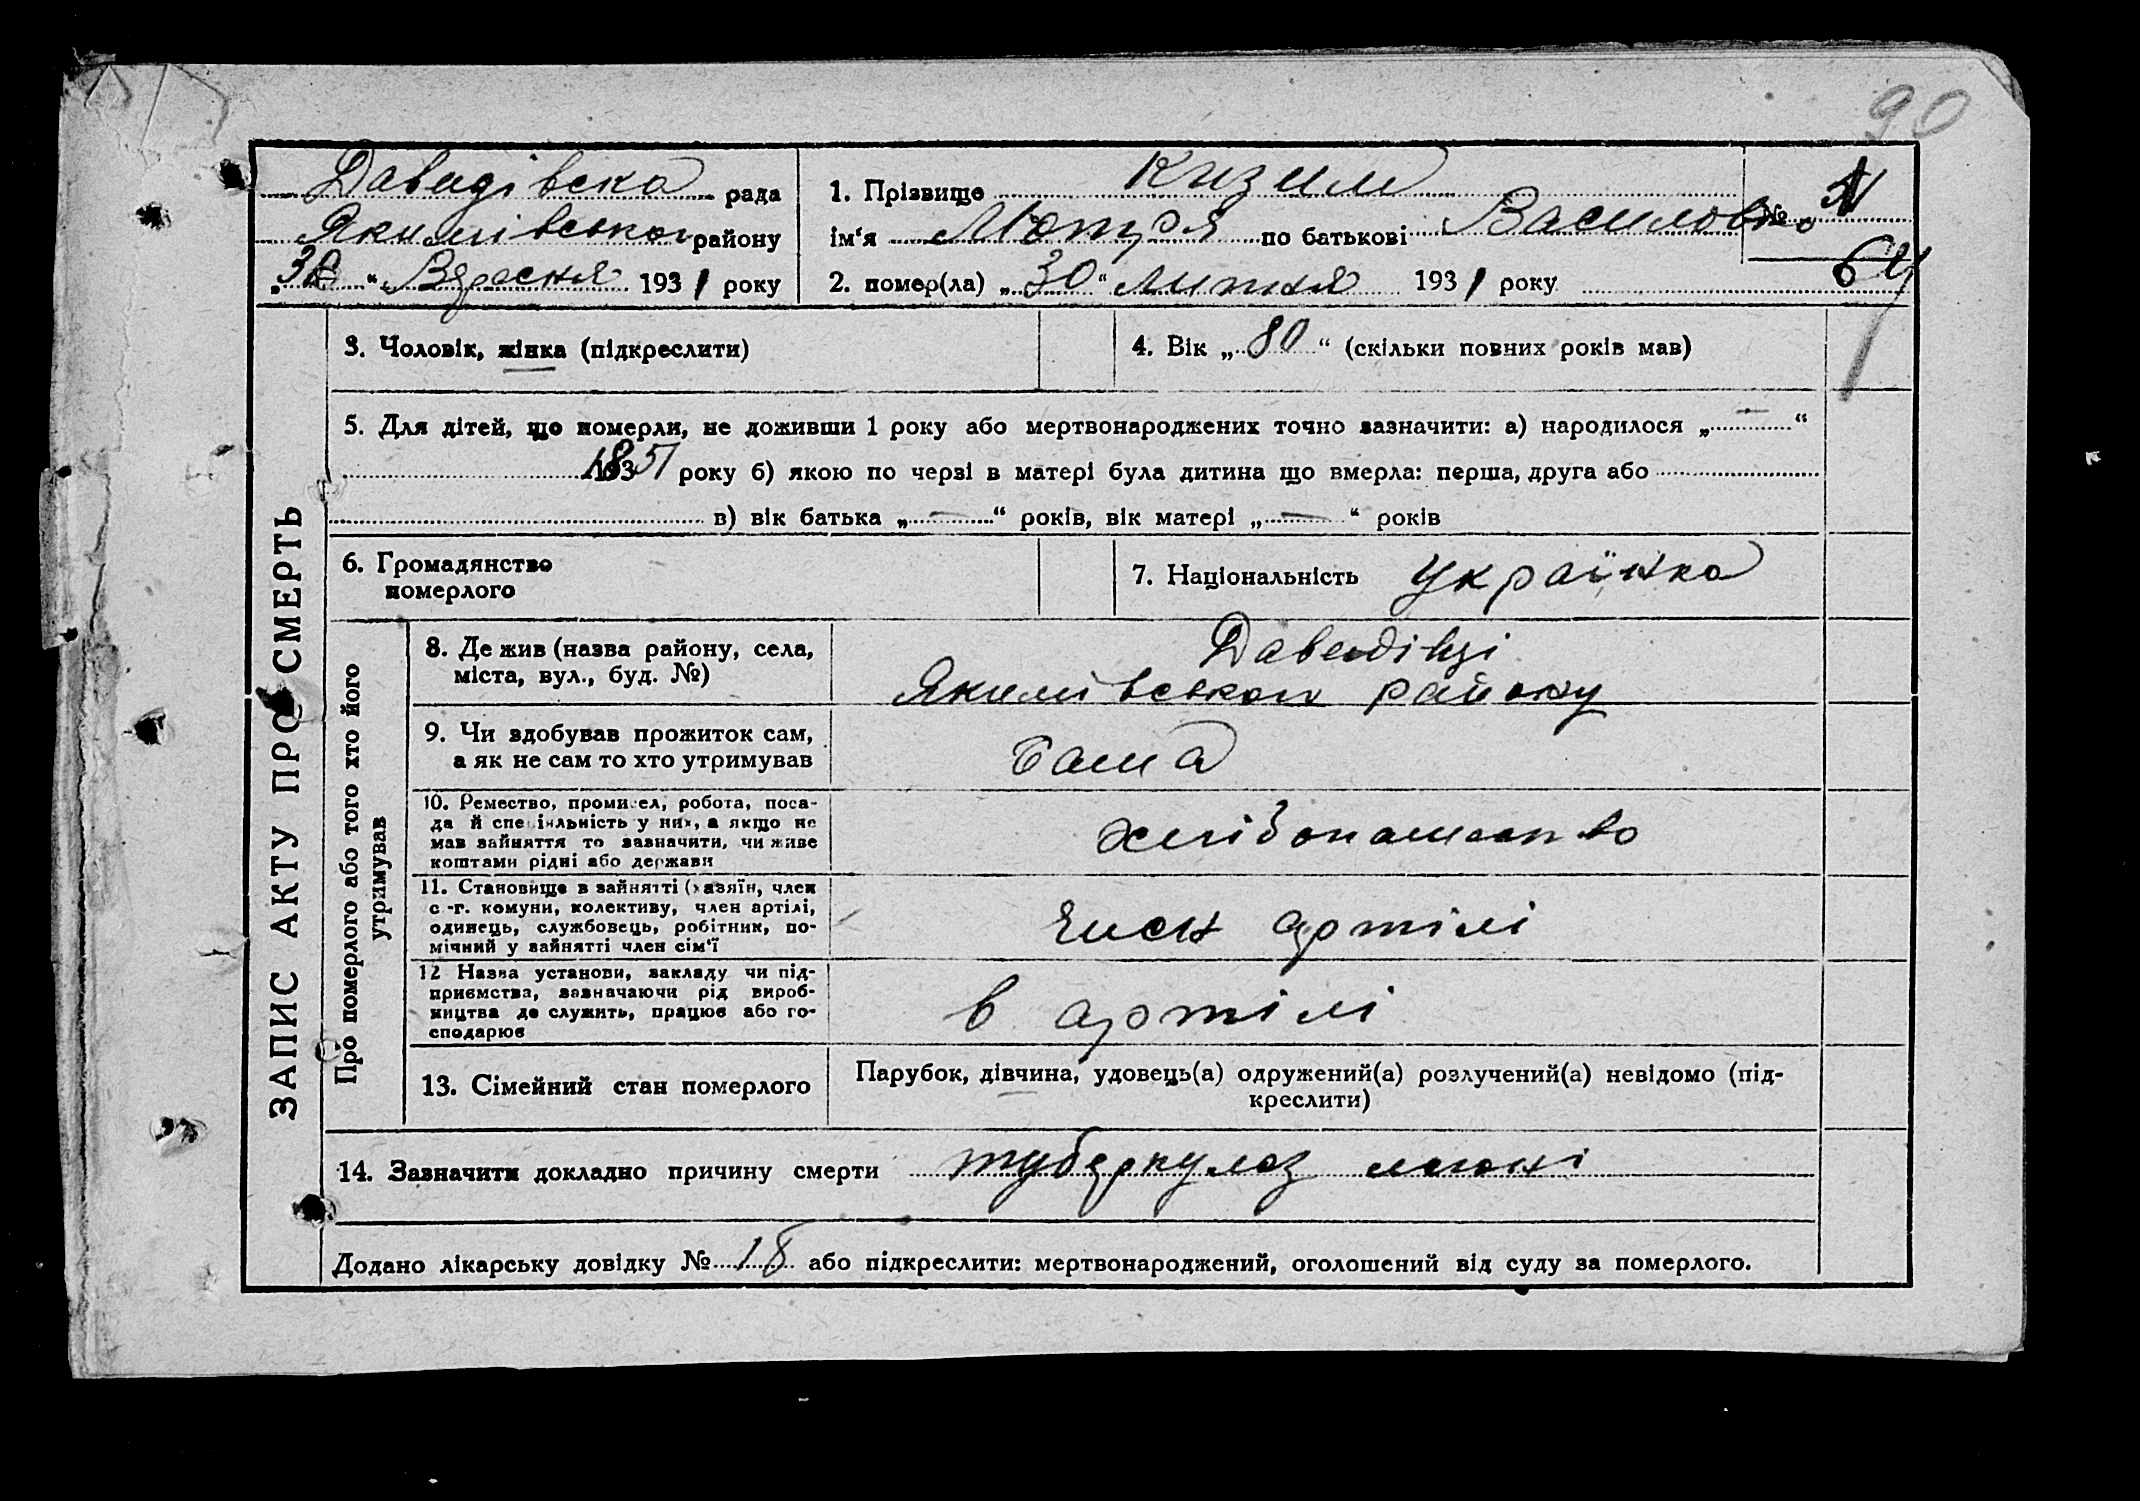 90
Давидівска рада
Якимівськог району
"30" Вересня 1931 року
1. Прізвище Кизим
ім'я Мотря по батькові Василовно
№
2. помер(ла) "30" Липня 1931 року
64
ЗАПИС АКТУ ПРО СМЕРТЬ
3. Чоловік, жінка (підкреслити)
4. Вік „80“ (скільки повних років мав)
5. Для дітей, що померли, не доживши 1 року або мертвонароджених точно зазначити: а) народилося „—“
1851 року б) якою по черзі в матері була дитина що вмерла: перша, друга або
в) вік батька „—“ років, вік матері „—“ років
6. Громадянство
померлого
7. Національність Українка
Про померлого або того хто його
утримував
8. Де жив (назва району, села,
міста, вул., буд. №)
Давидівці
Якимівськог району
9. Чи здобував прожиток сам,
а як не сам то хто утримував
Сама
10. Ремество, промисел, робота, поса-
да й спеціяльність у них, а якщо не
мав зайняття то зазначити, чи живе
коштами рідні або держави
хлібопашество
11. Становище в зайнятті (хазяїн, член
с.-г. комуни, колективу, член артілі,
одинець, службовець, робітник, по-
мічний у зайнятті член сім'ї
член артілі
12 Назва установи, закладу чи під-
приємства, зазначаючи рід вироб-
ництва де служить, працює або го-
сподарює
в артілі
13. Сімейний стан померлого
Парубок, дівчина, удовець(а) одружений(а) розлучений(а) невідомо (під-
креслити)
14. Зазначити докладно причину смерти туберкулоз
Додано лікарську довідку № 18 або підкреслити: мертвонароджений, оголошений від суду за померлого.